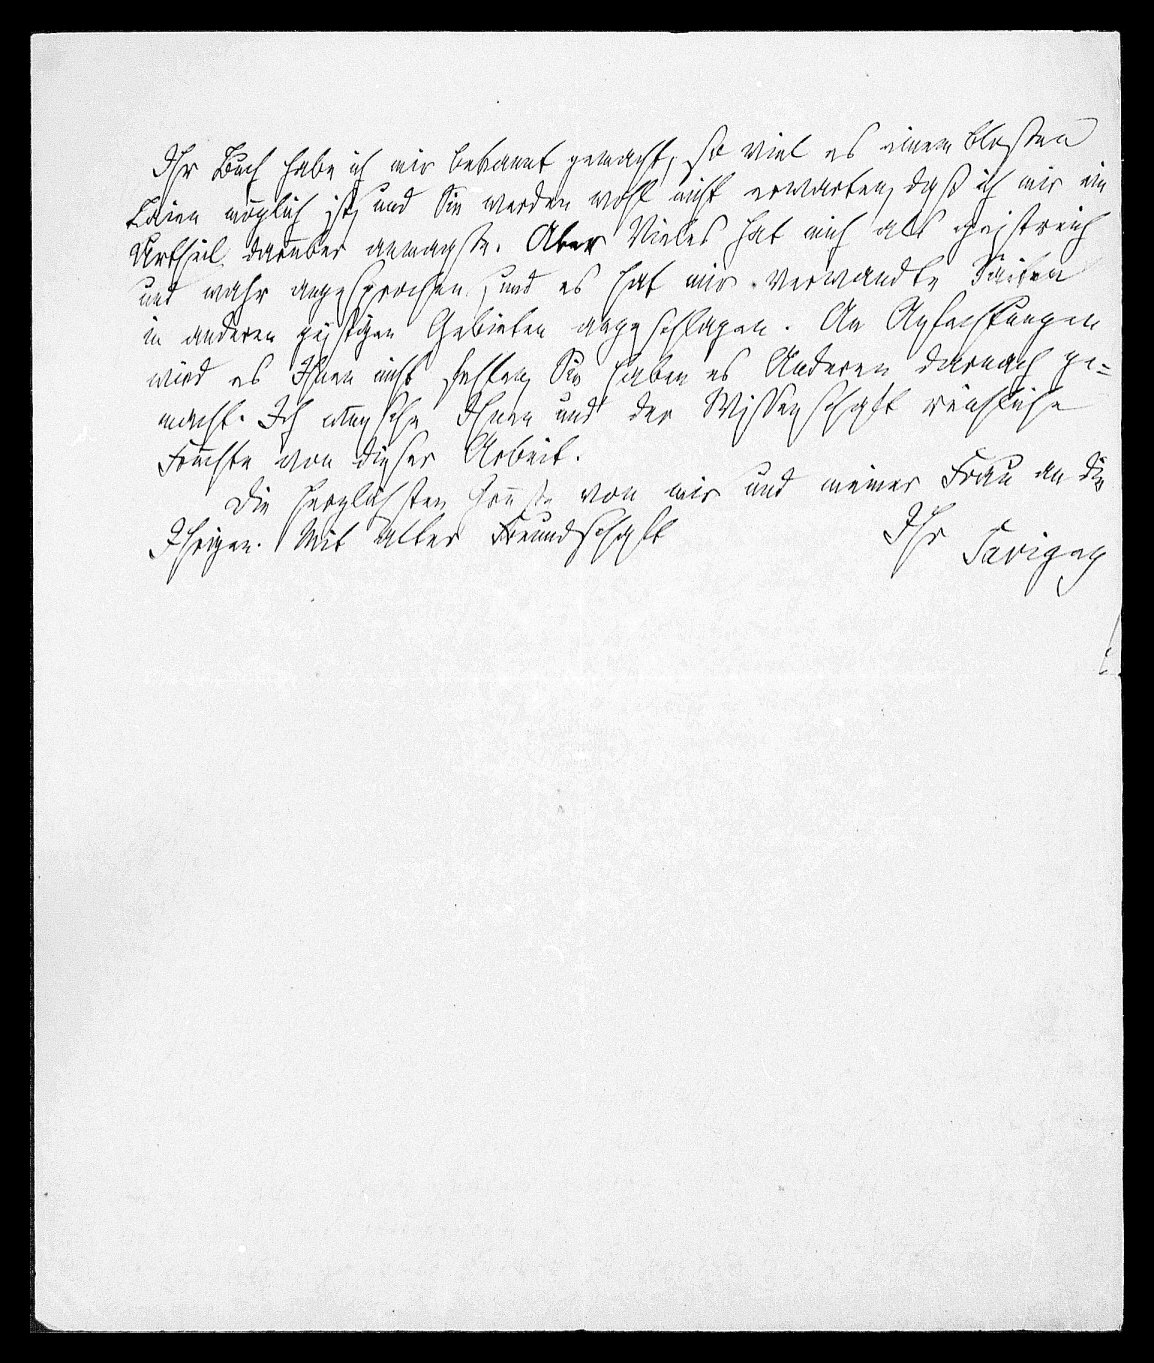 Ihr Buch habe ich mir bekannt gemacht, so viel es einem bloßen
Laien möglich ist, und Sie werden wohl nicht erwarten, daß ich mir ein
Urtheil darüber anmaßte. Aber Vieles hat mich als geistreich
und wahr angesprochen, und es hat mir verwandte Saiten
in anderen geistigen Gebieten angeschlagen. An Anfechtungen
wird es Ihnen nicht fehlen, Sie haben es Anderen darnach ge-
macht. Ich wünsche Ihnen und der Wissenschaft reichliche
Früchte von dieser Arbeit.
Die herzlichsten Grüße von mir und meiner Frau an die
Ihrigen. Mit alter Freundschaft
Ihr Savigny